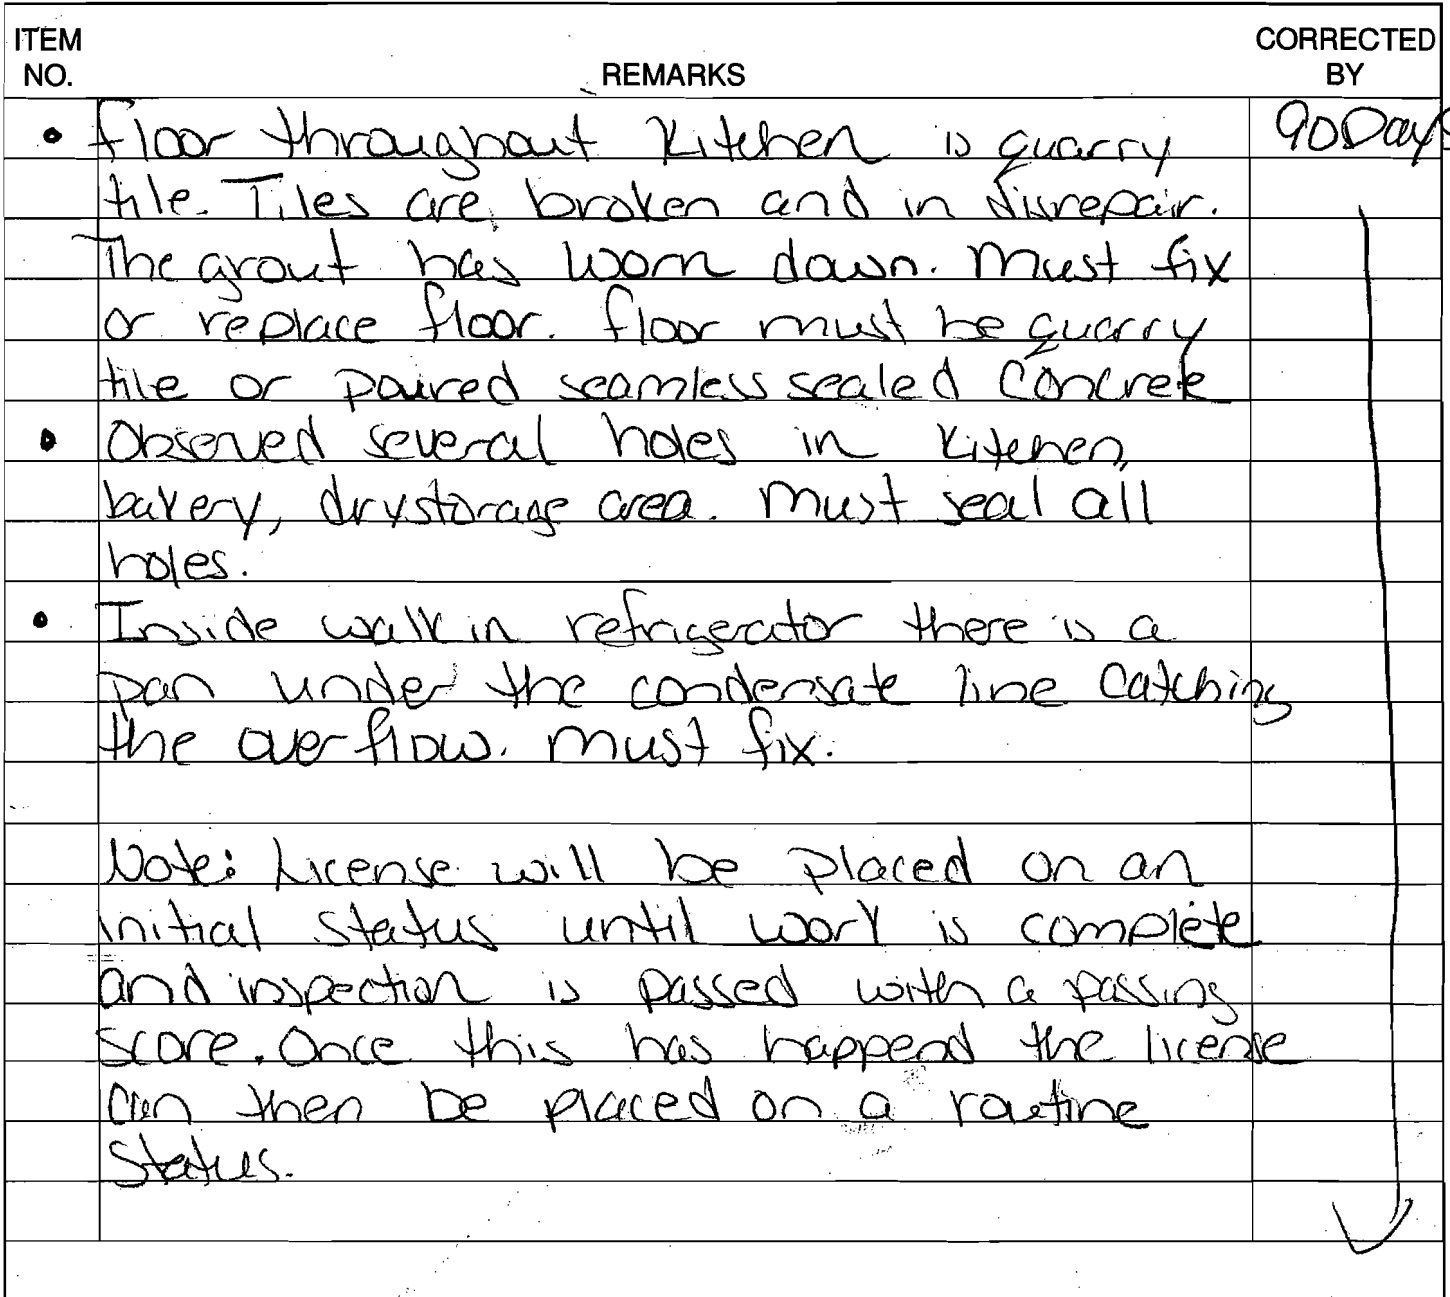 ITEM NO. REMARKS CORRECTED BY
• floor throughout kitchen is quarry 90 Days
tile. Tiles are broken and in disrepair.
The grout has worn down. Must fix
or replace floor. floor must be quarry
tile or poured seamless sealed concrete
• Observed several holes in kitchen,
bakery, dry storage area. Must seal all
holes.
• Inside walk in refrigerator there is a
pan under the condensate line catching
the overflow. Must fix.
Note: License will be placed on an
initial status until work is complete
and inspection is passed with a passing
score. Once this has happend the license
can then be placed on a routine
status.